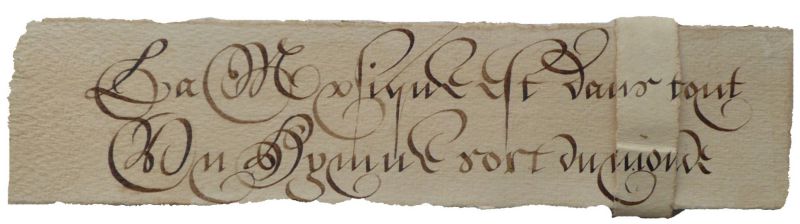 La Musique est dans tout
Un Hymne sort du monde